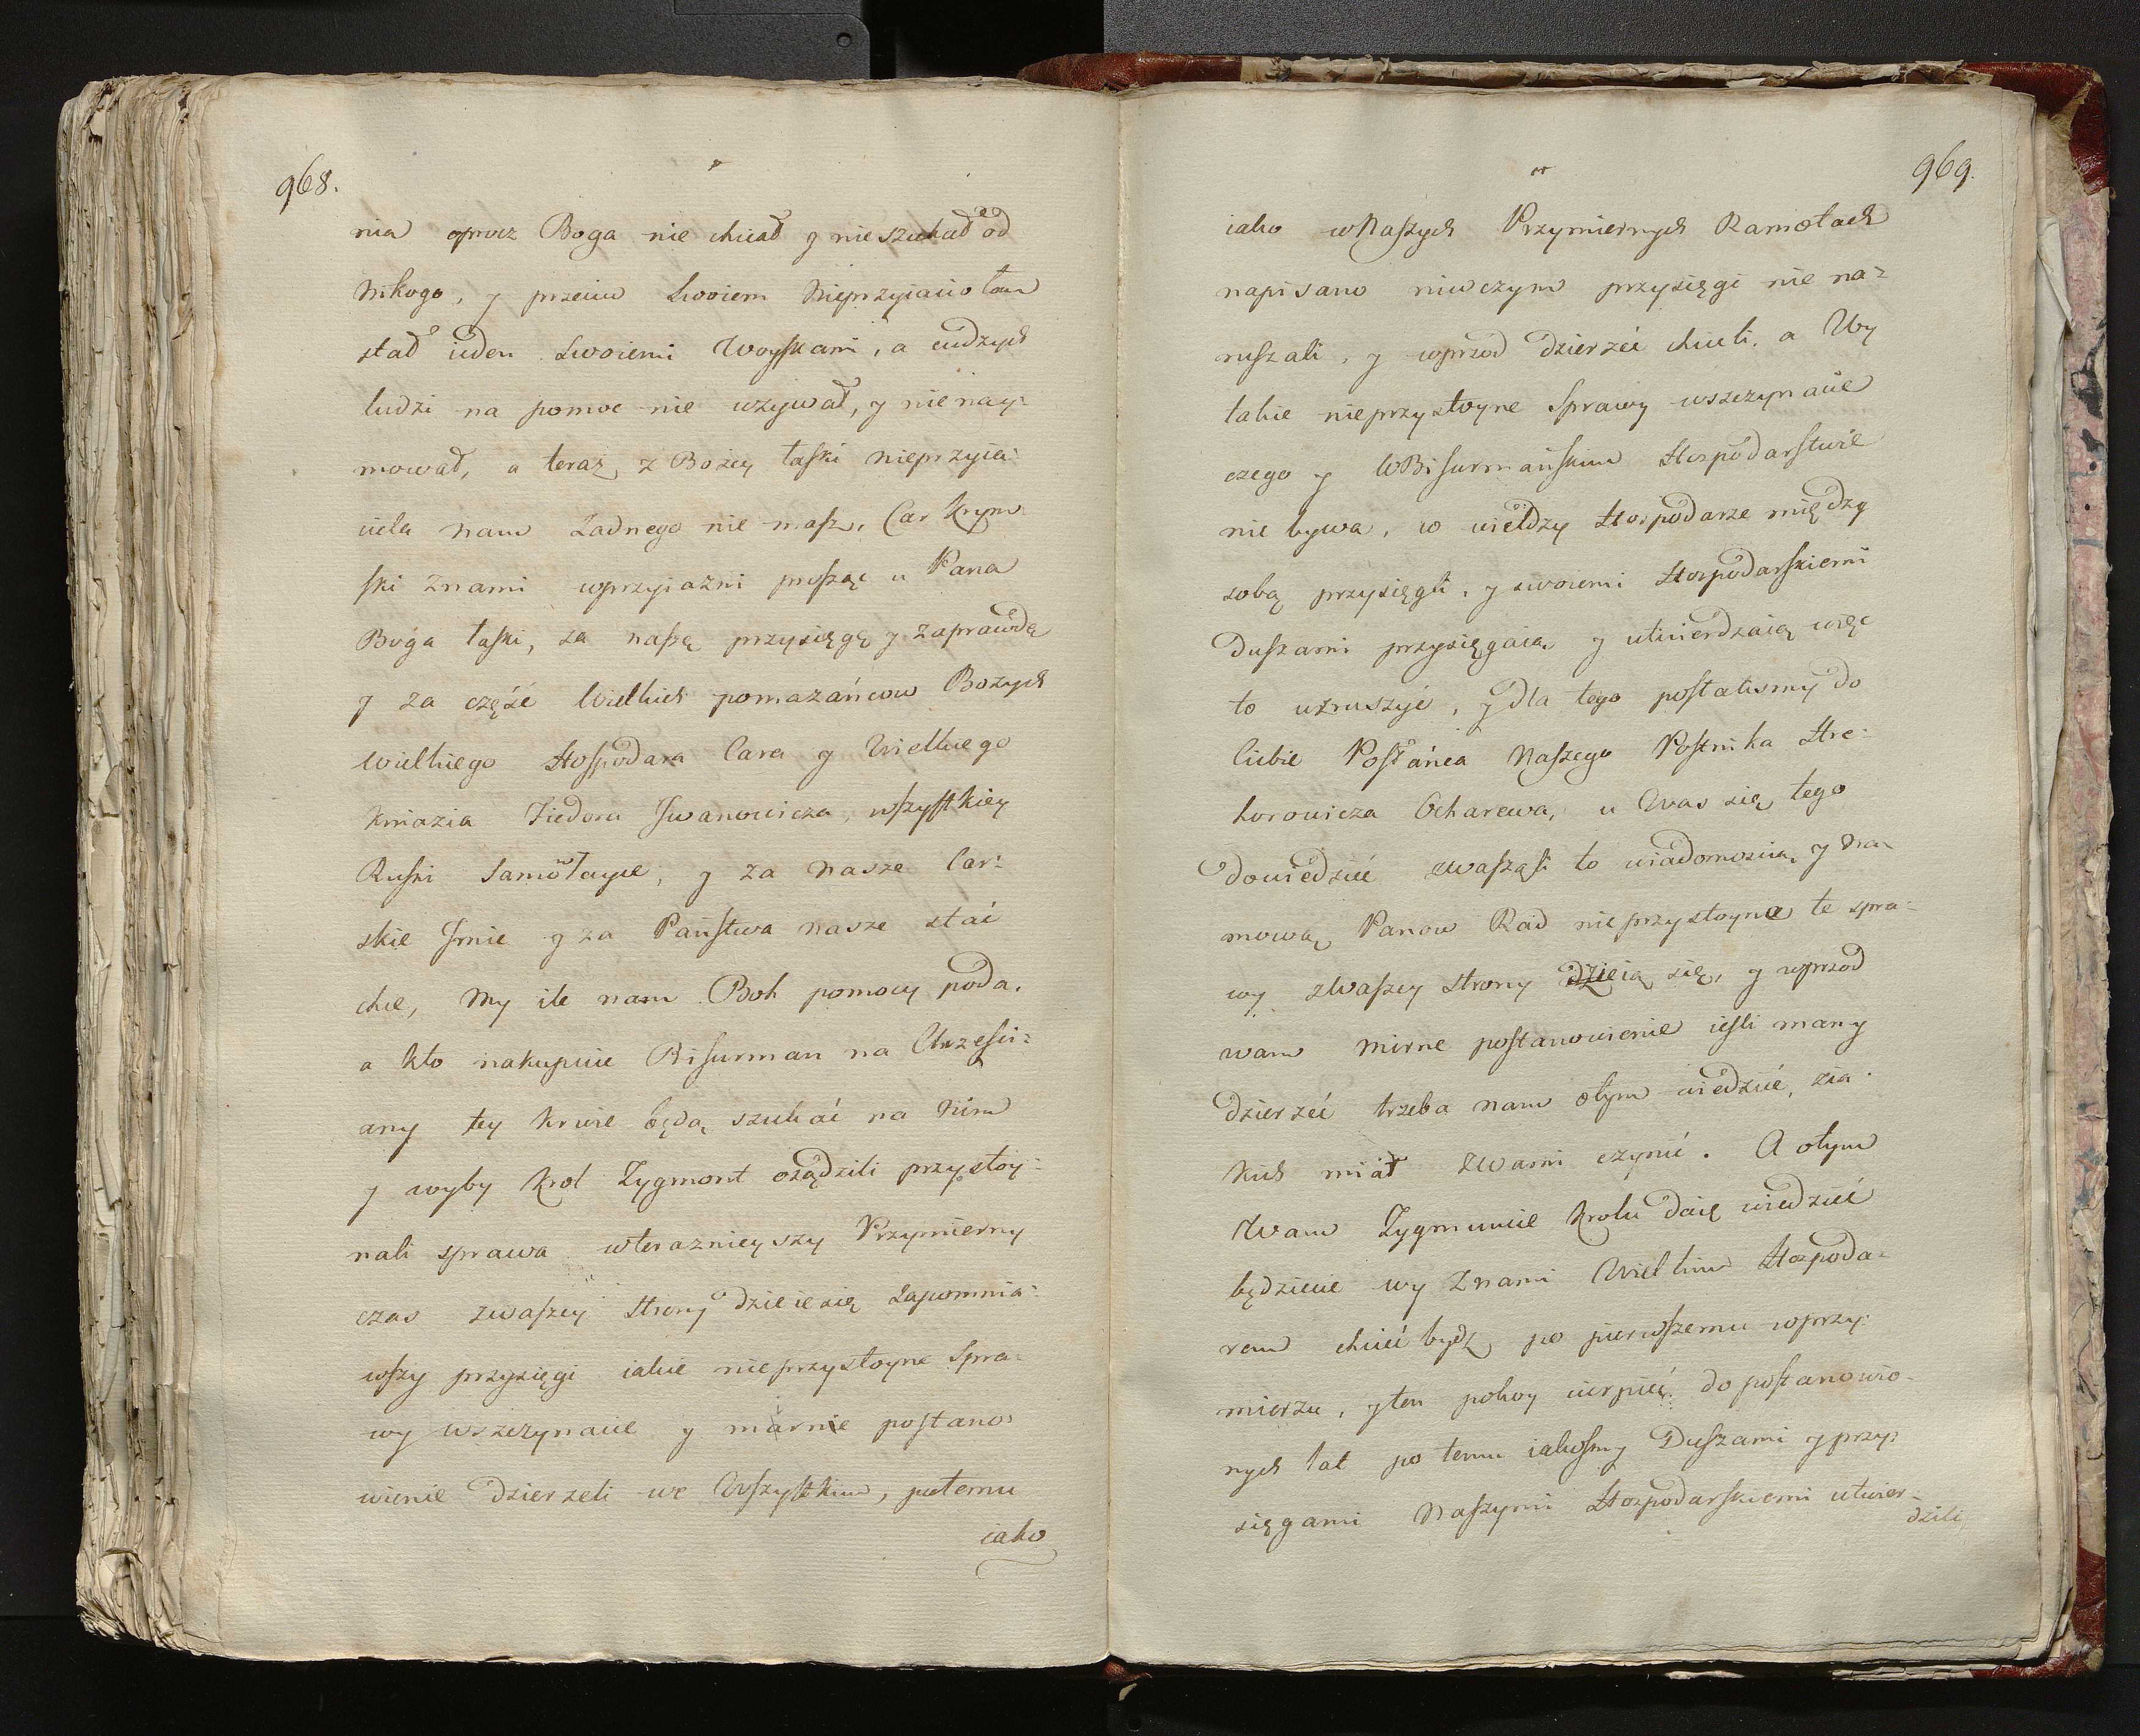 968.
nia oprocz Boga nie chciał y nieszukał od
Nikogo, y przeciw Swoiem Nieprzyiaciołom
stał ieden Swoiemi Woyskami, a cudzych
ludzi na pomoc nie używał, y nienay-
mował, a teraz z Bożey łaski nieprzyia-
ciela nam Żadnego nie masz. Car Krym
ski Znami wprzyiaźni prosząc u Pana
Boga łaski, za naszą przysięgę y Zaprawdą
y za cześć Wielkich pomazańcow Bożych
Wielkiego Hospodara Cara y Wielkiego
Kniazia Fiedora Iwanowicza, wszystkiey
Ruski Samowłayce, y za nasze Car-
skie Imie y za Państwa nasze stać
chce, My ile nam Boh pomocy poda,
a kto nakupuie Bisurman na Chrześci-
any tey krwie będą szukać na Nim
y wyby Krol Zygmont osądzili przystoy-
nali sprawa wteraznieyszy Przymierny
czas zwaszey Strony dzieie się Zapomnia-
wszy przysięgi iakie nieprzystoyne Spra-
wy wszczynacie y mirnie postano-
wienie dzierzeli we Wszystkim, potemu
iako
969.
iako wNaszych Przymiernych Ramotach
napisano niwczym przysięgi nie na-
ruszali, y wprzod dzierzéć chcieli. a Wy
takie nieprzystoyne Sprawy wszczynacie
czego y WBisurmańskim Hospodarstwie
nie bywa, co wieldzy Hospodarze między
sobą przysięgli, y swoiemi Hospodarskiemi
Duszami przysięgaią y utwierdzaią więc
to wzruszyć, y dla tego posłalismy do
Ciebie Posłańca Naszego Postnika Hre-
horowicza Ocharewa, u Was się tego
dowiedzieć zwasząli to wiadomością y na-
mową Panow Rad nieprzystoyne te spra-
wy zWaszey strony dzieią się, y wprzod
wam mirne postanowienie iesli mamy
dzierzéć trzeba nam otym wiedzieć, zia-
kich miar zWami czynić. A otym
Wam Zygmuncie Krolu daię wiedzieć
będziecie wy Znami Wielkim Hospoda-
rem chcieć bydź po pierwszemu wprzy-
mierzu, y ten pokoy cierpieć do postanowio-
nych lat po temu iakosmy Duszami y przy-
sięgami Naszymi Hospodarskiemi utwier-
dzili